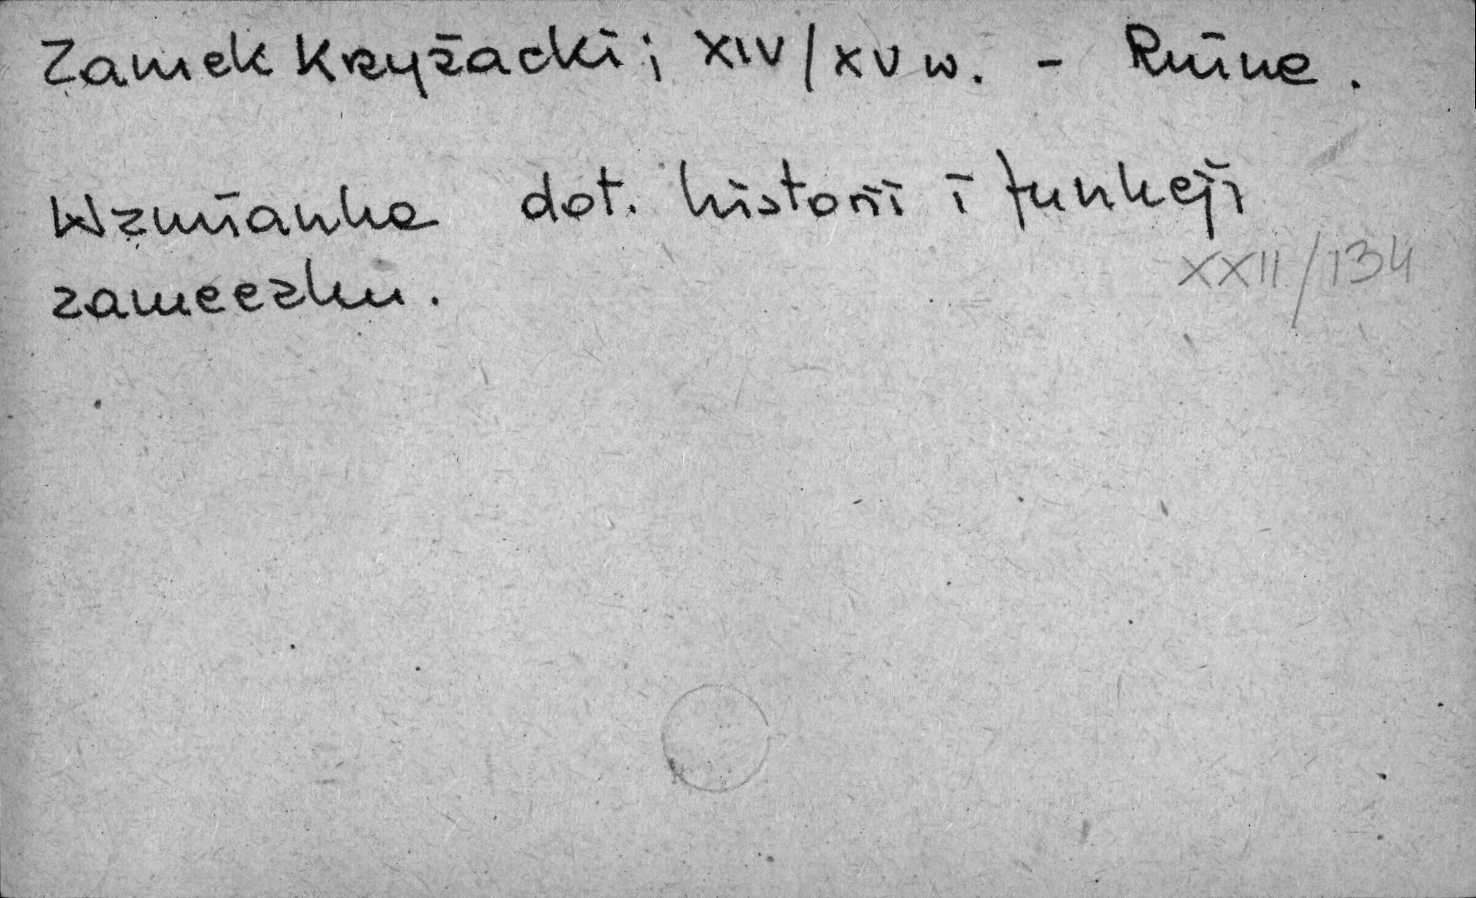 Zamek Krzyżacki; XIV/XV w. - Ruina.
Wzmianka dot. historii i funkcji
XXII/134
zameczku.